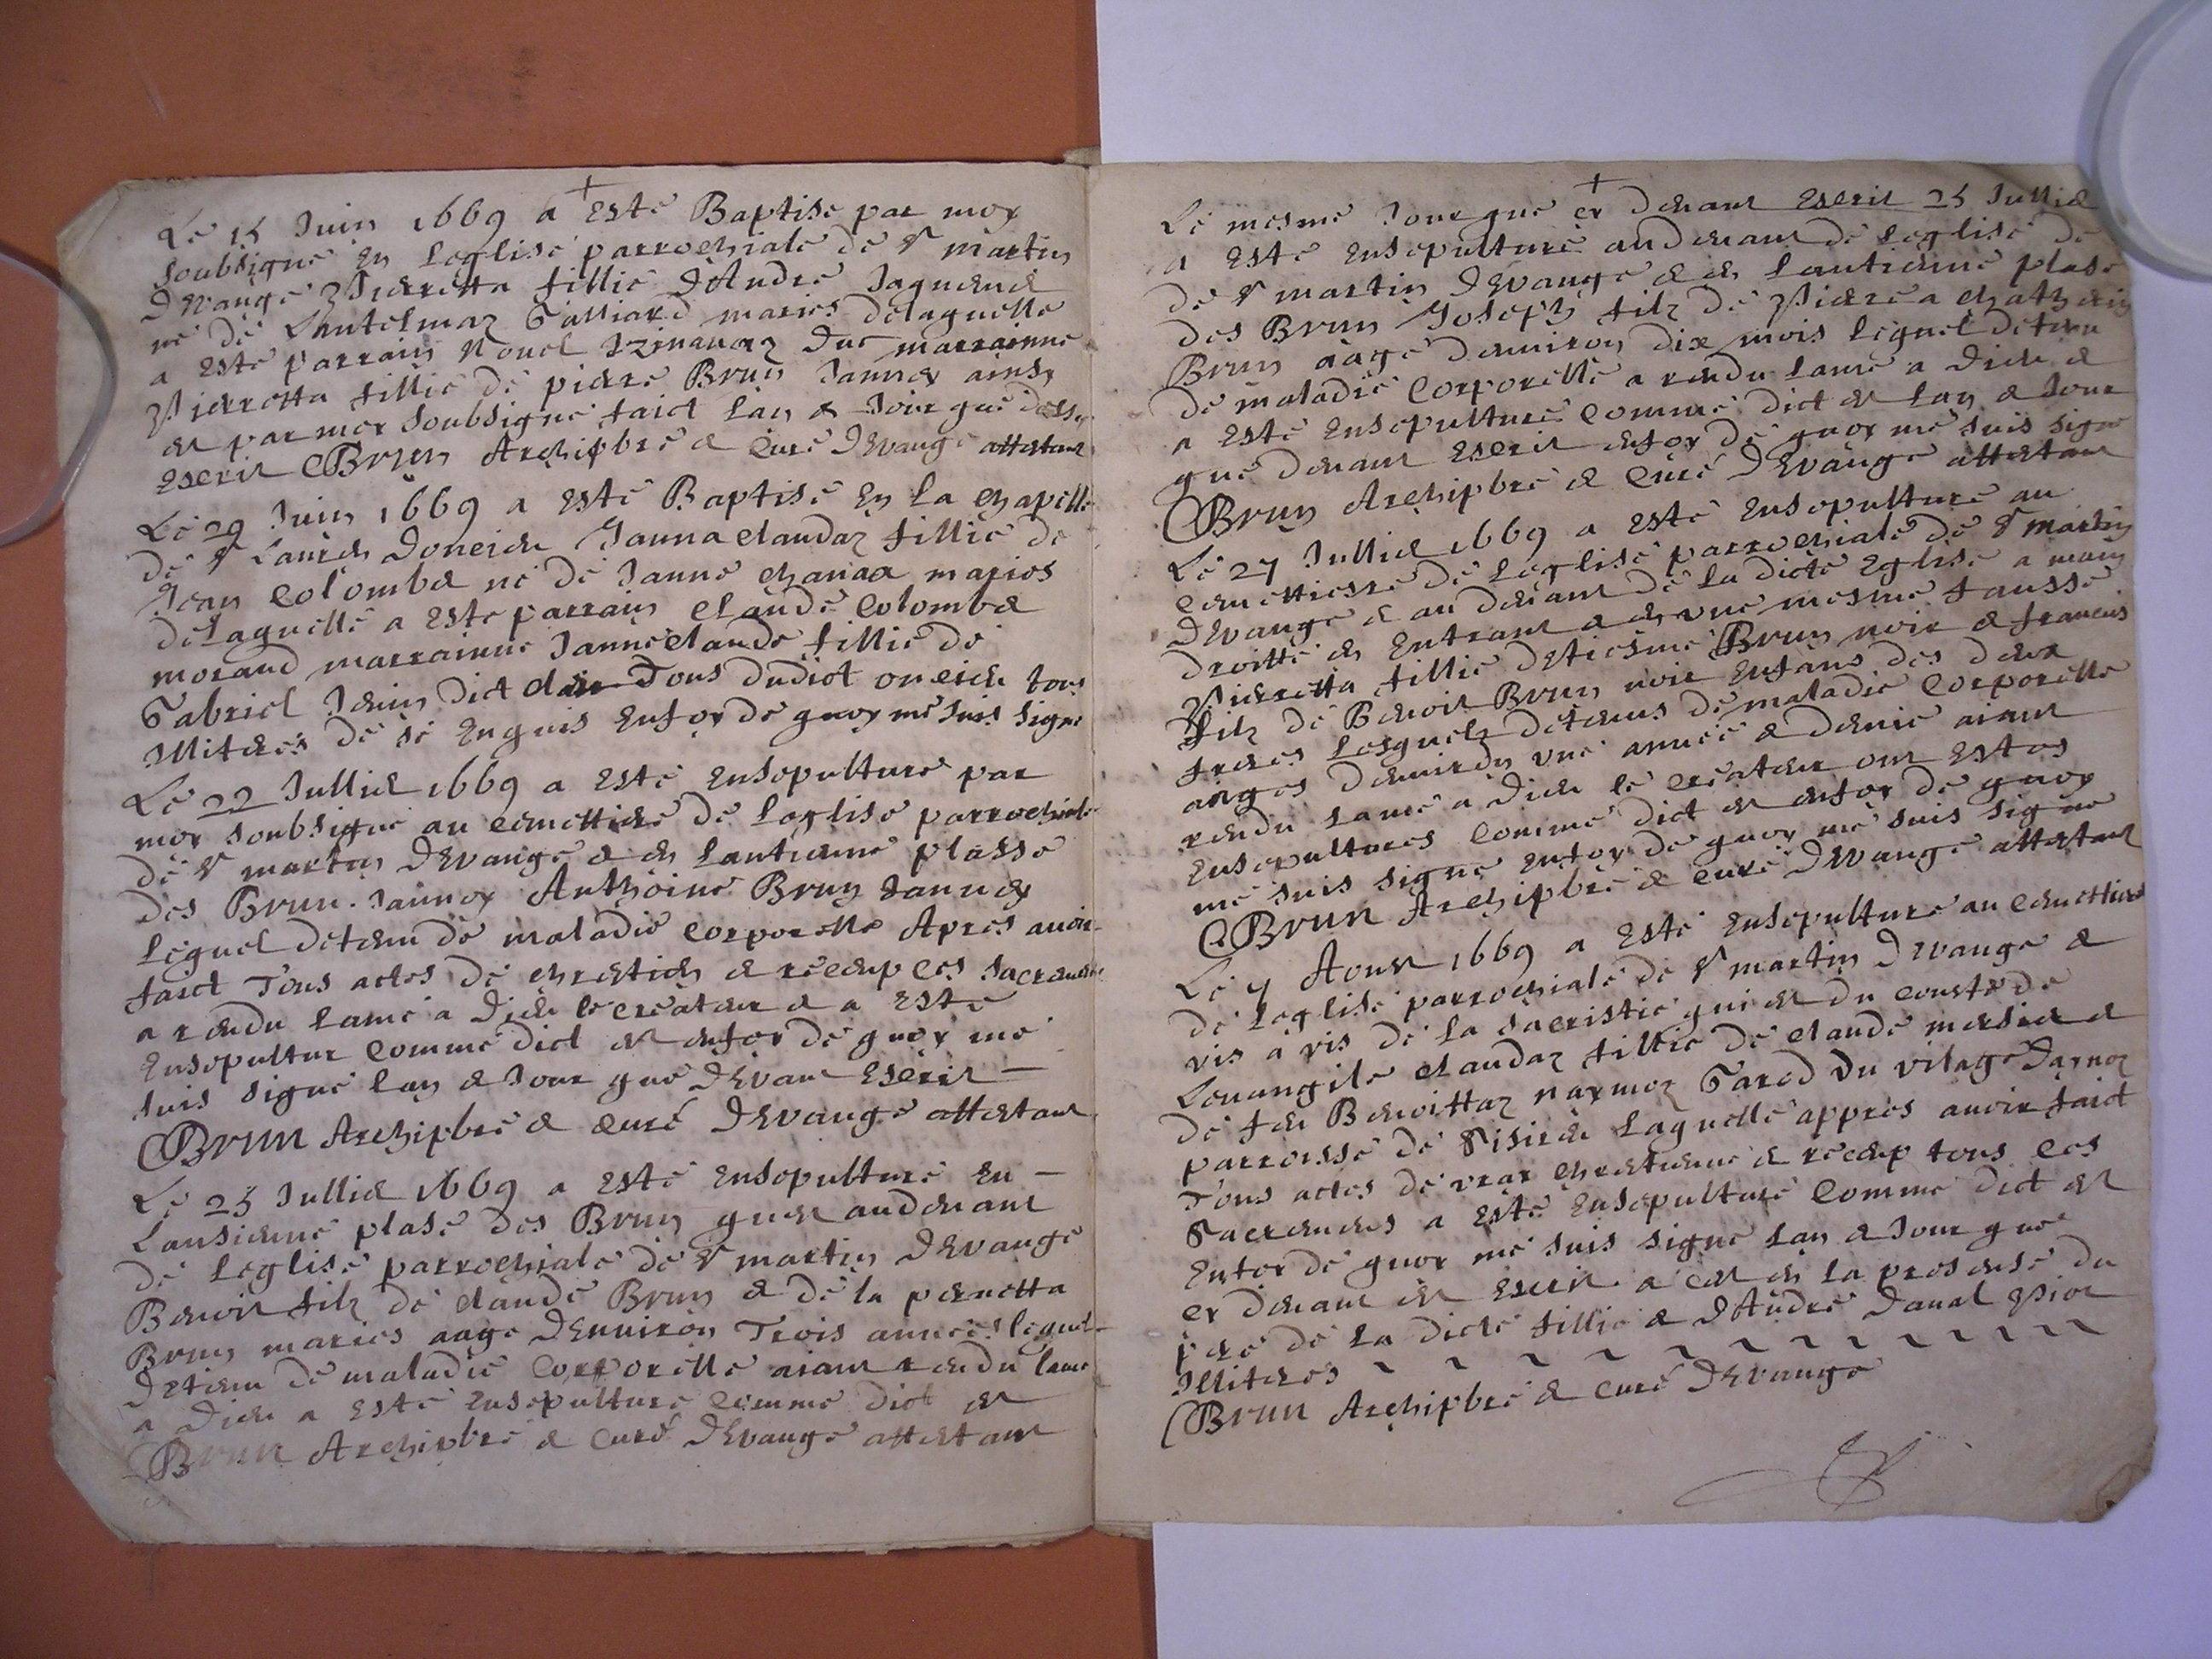 Le 15 Juin 1669 a Esté Baptisé par moy
soubsigné En Leglise parrochiale de St martin
DEvauge Pierretta fillie dAndré
ne de Lantelmaz Galliard mariés delaquelle
a esté parrain Nouel Duc marrainne
Pierretta fillie de pierre Brun Jannex ainsy
est par moy soubsigné faict Lan & Jour que dessus
Escrit Brun Archipbre & Curé DEvauge attestant
Le 29 Juin 1669 a Esté Baptisé En La Chapelle
de St Laurens Doneieu Janna claudaz fillie de
Jean Colombet né de Janne chanaa mariés
deLaquelle a Esté parrain Claude Colombet
morand marrainne Janneclaude fillie de
Gabriel Dict Tous dudict oneieu tous
Illiterés de se Enquis Enfoy de quoy me suis signé
Le 22 Julliet 1669 a Esté Ensepulturé par
moy soubsigné au Cemettiere de Leglise parrochiale
de St martin DEvauge & en Lantienne plasse
des Brun . Jannox Anthoine Brun Jannex
Lequel detenu de maladie Corporelle Apres avoir
faict Tous actes de chrestien & receup les sacremens
a rendu Lame a Dieu le createur & a Esté
Ensepultur Comme dict est enfoy de quoy me
suis signé Lan & Jour que dEvant Escrit –
Brun Archipbre & Curé DEvauge attestant
Le 25 Julliet 1669 a Esté Ensepulturé En –
Lansienne plase des Brun quiest audevant
de Leglise parrochiale de St martin DEvauge
Benoit filz de Claude Brun & de la pernetta
Brun mariés aage dEnviron Trois années lequel
Detenu de maladie Corporelle aiant rendu lame
a Dieu a Esté Ensepulturé Comme dict est
Brun Archipbre & Curé DEvauge attestant
Le mesme Jour que cy devant Escrit 25 Julliet
a Esté Ensepulturé audevant de Leglise de
de St martin DEvauge & en Lantienne plase
des Brun Joseph filz de Pierre a Chatherin
Brun aagé denviron dix mois lequel detenu
de maladie Corporelle a rendu Lame a Dieu &
a Esté Ensepulturé Comme dict est Lan & Jour
que devant Escrit enfoy de quoy me suis signé
Brun Archipbre & Curé DEvauge attestant
Le 27 Julliet 1669 a Esté Ensepulturé au
Cemettiesre de Leglise parrochiale de St martin
DEvauge & au devant de La dicte Eglise a main
droitte en Entrant & en une mesme fausse
Pierretta fillie detiesme Brun noir & francois
filz de Benoit Brun noir Enfans des deux
freres Lesquelz detenus de maladie Corporelle
aages denviron une année & demie aiant
rendu Lame a Dieu le createur ont Estes
Ensepultures Comme dict est enfoy de quoy
me suis signé Enfoy de quoy me suis signé
Brun Archipbre & Curé DEvauge attestant
Le 7 Aoust 1669 a Esté Ensepulturé au Cemettiere
de Leglise parrochiale de St martin DEvauge &
vis a vis de La sacristie qui est du cousté de
Levangile Claudaz fillie de claude mersier &
de feu Benoittaz naymoz Garod du vilage Daynoz
parroisse de Sisirieu Laquelle appres avoir faict
Tous actes de vray chrestienne & receup tous les
Sacremens a Esté Ensepulturé Comme dict est
Enfoy de quoy me suis signé Lan & Jour que
cy devant est Escrit a & en la presense du
pere de La dicte fillie & dAndré Danal
Illiteres ~ ~ ~ ~ ~ ~ ~ ~ ~ ~
Brun Archipbre & Curé DEvauge